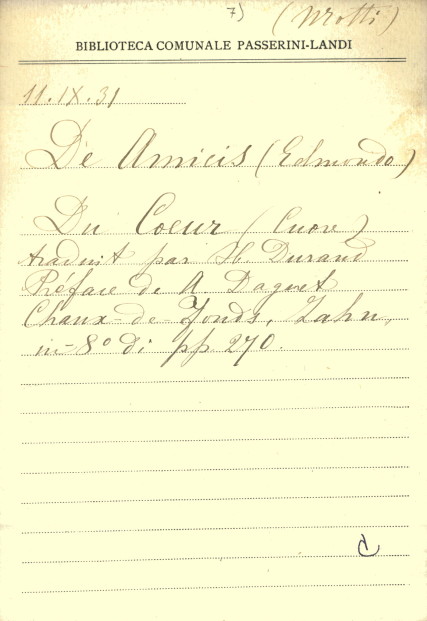 7) (Motti)
BIBLIOTECA COMUNALE PASSERINI-LANDI
11.IX.31
De Amicis (Edmondo)
Du Coeur (Cuore)
traduit par H Durand
Préface de A Daguet
Chaux-de-Fonds, Zahn,
in-8° di pp 270.